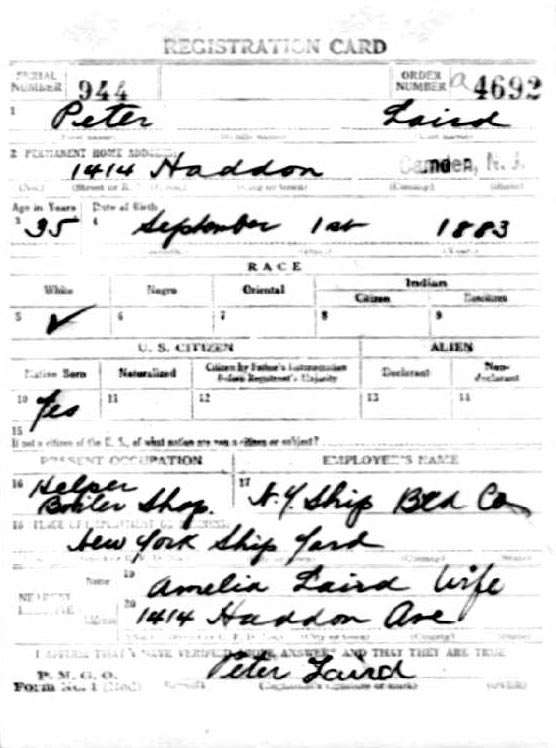 REGISTRATION CARD
SERIAL NUMBER 944 ORDER NUMBER a 4692
1 Peter Laird
2 PERMANENT HOME ADDRESS:
1414 Haddon Camden, N. J.
(No.) (Street or R. F. D. No.) (City or town) (County) (State)
Age in Years Date of Birth
3 35 4 September 1st 1883
RACE
White Negro Oriental Indian
Citizen Noncitizen
5 ✓ 6 7 8 9
U. S. CITIZEN ALIEN
Native Born Naturalized Citizen by Father's Naturalization Before Registrant's Majority Declarant Non-declarant
10 Yes 11 12 13 14
15
If not a citizen of the U. S., of what nation are you a citizen or subject?
PRESENT OCCUPATION EMPLOYER'S NAME
16 Helper 17
Boiler Shop. N.Y. Ship Bld Co
18 PLACE OF EMPLOYMENT OR BUSINESS:
New York Ship Yard
(County) (State)
Name 19 Amelia Laird Wife
NEAREST RELATIVE
Address 20 1414 Haddon Ave
(City or town) (County) (State)
I AFFIRM THAT I HAVE VERIFIED ABOVE ANSWERS AND THAT THEY ARE TRUE
P. M. G. O.
Form No. 1 (Red) Peter Laird
(Registrant's signature or mark) (OVER)